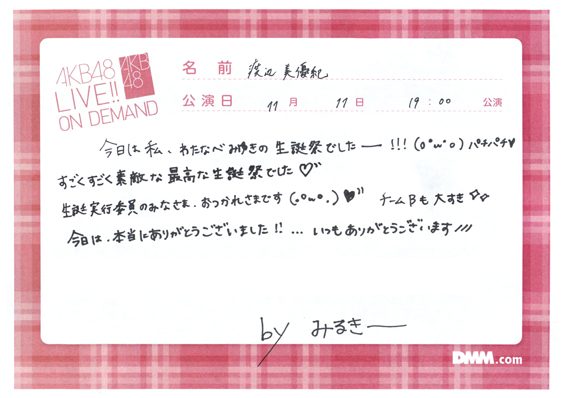 AKB48
LIVE!!
ON DEMAND
AKB
48
名 前 渡辺 美優紀
公演日 11 月 11 日 19:00 公演
今日は私、わたなべみゆきの生誕祭でしたー!!!(o°ω°o)パチパチ♥
すごくすごく素敵な最高な生誕祭でした♡"
生誕実行委員のみなさま.おつかれさまです(.°ω°.)♥" チームBも大すき✧✧
今日は.本当にありがとうございました!!...いつもありがとうございます///
by みるきー
DMM.com